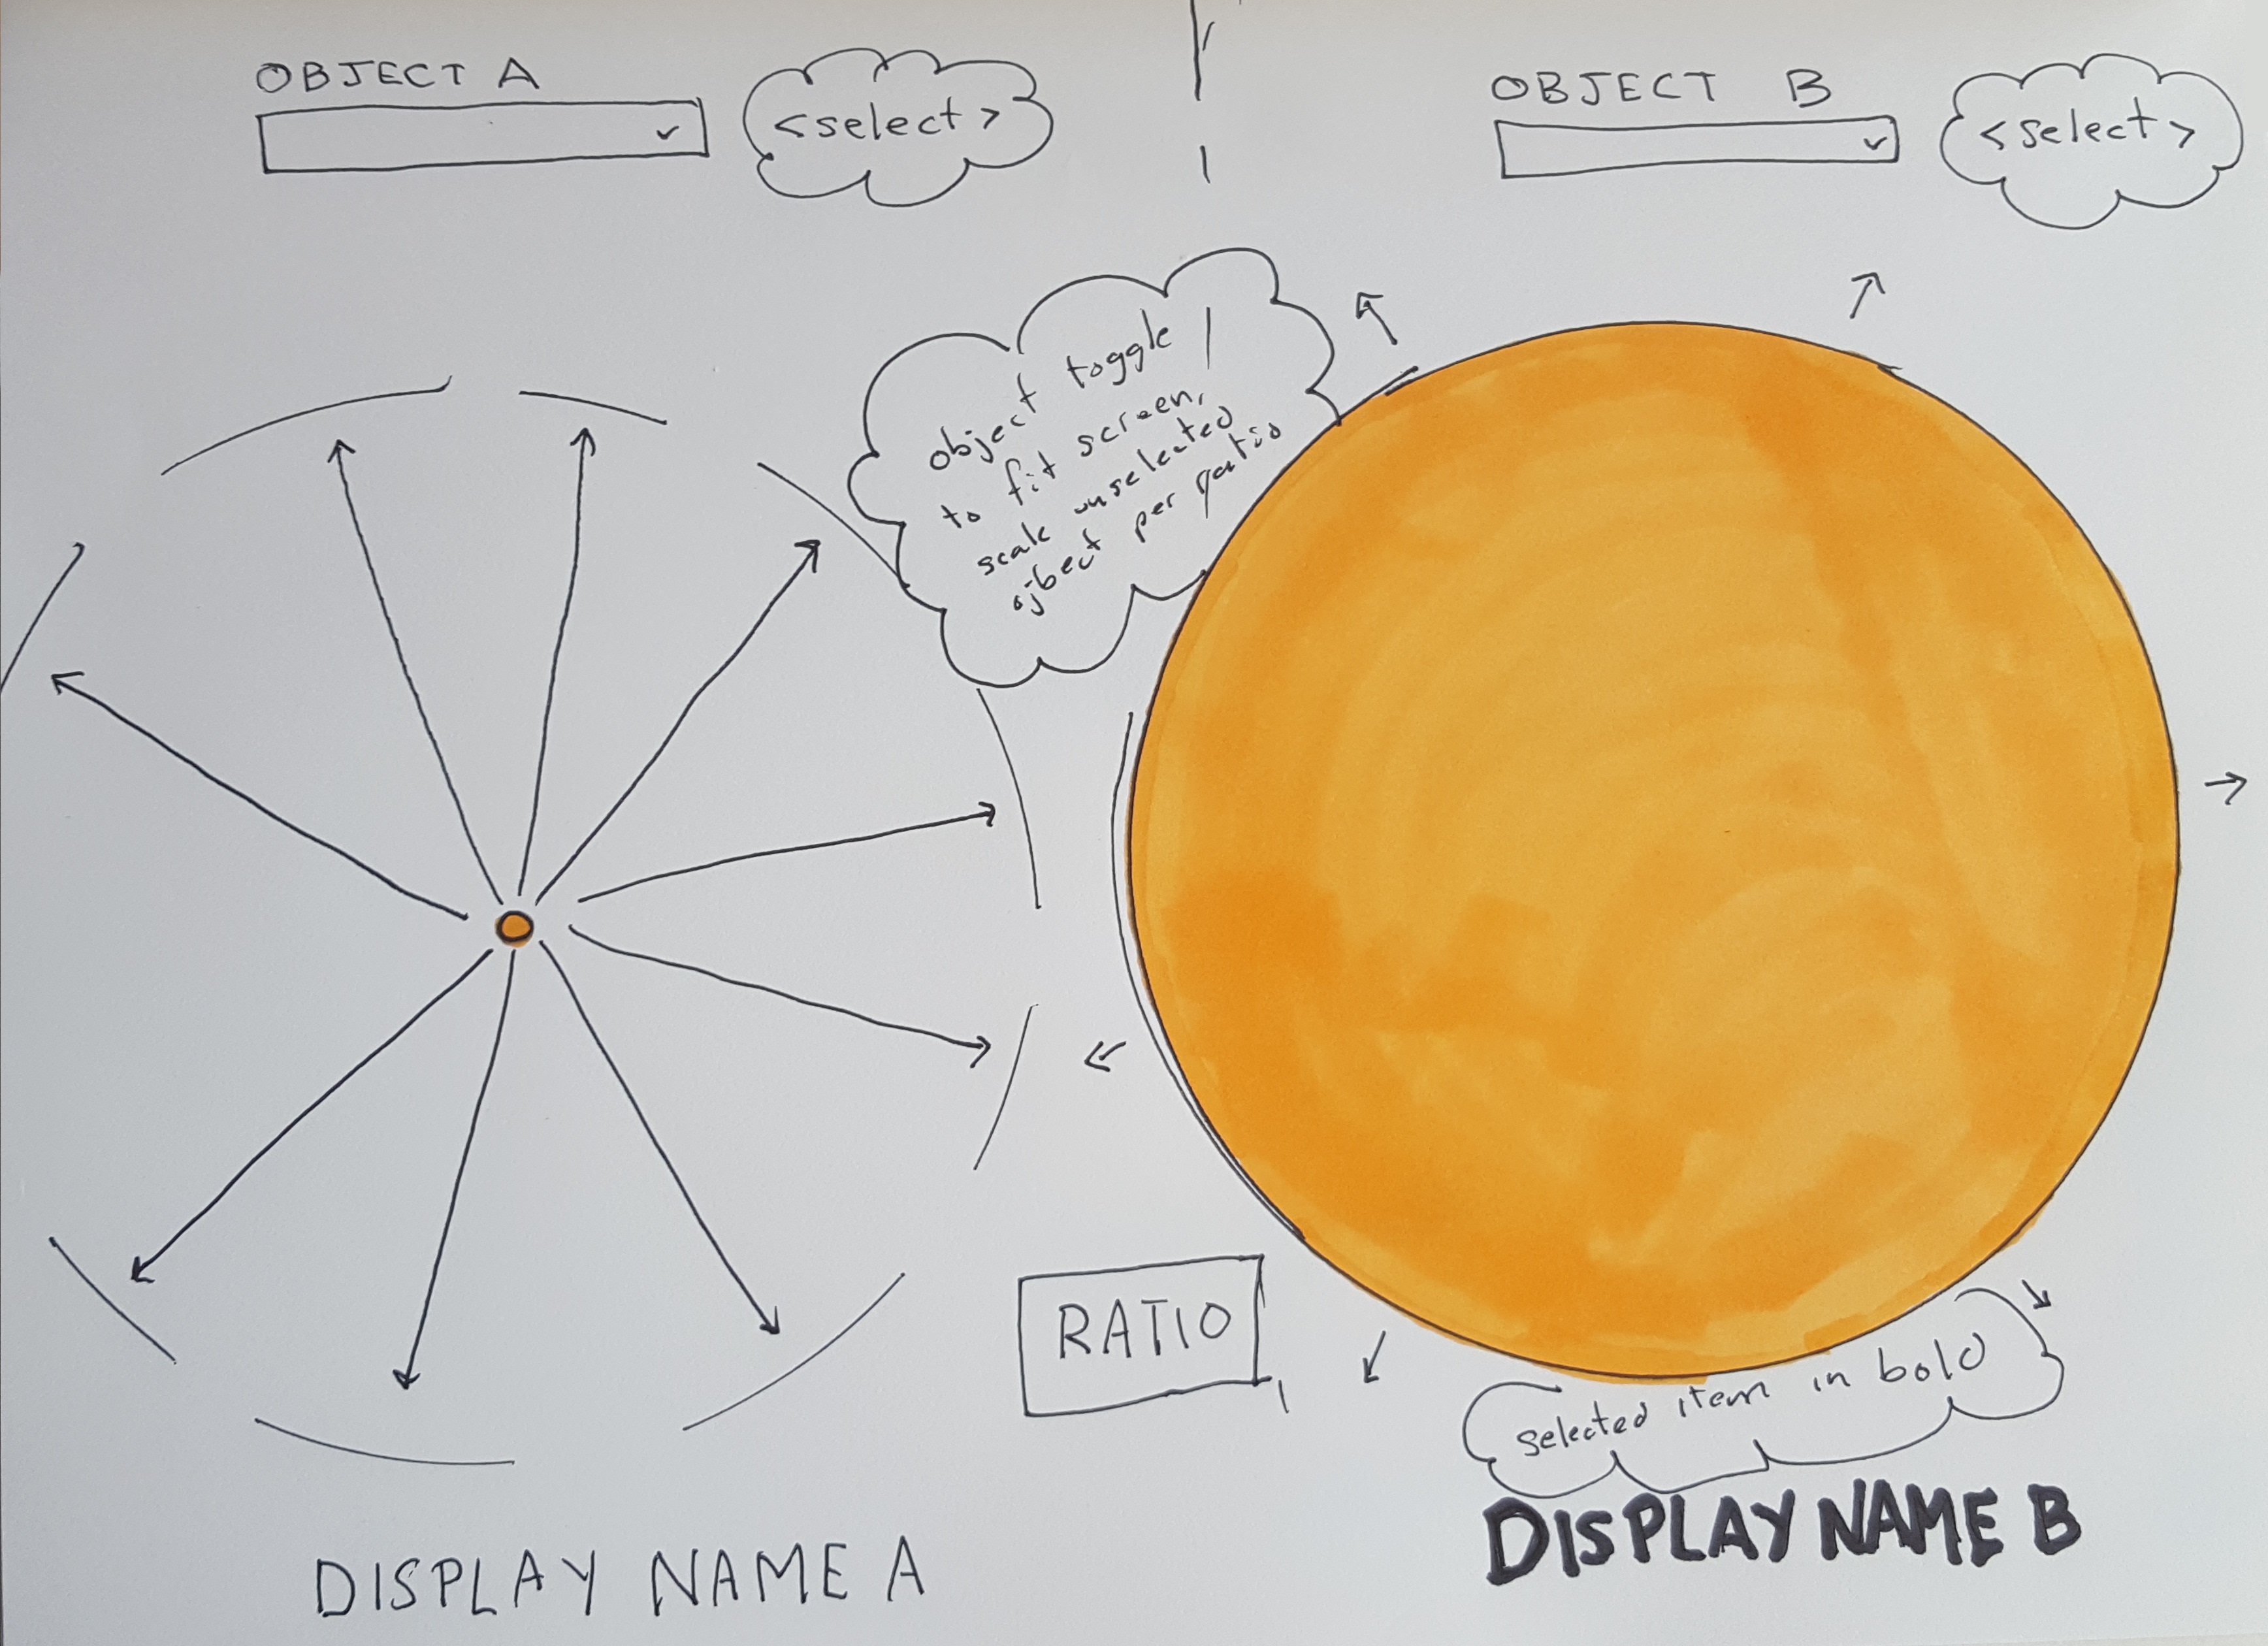 OBJECT A
<select>
OBJECT B
<select>
object toggle
to fit screen,
scale unselected
ojbect per ratio
RATIO
selected item in bold
DISPLAY NAME A
DISPLAY NAME B